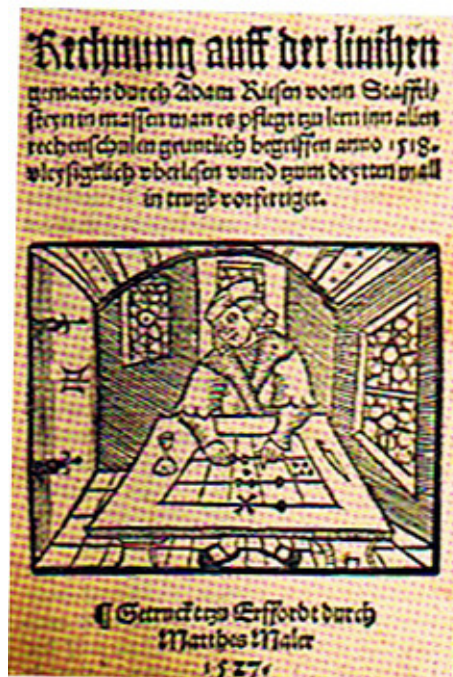 Rechnung auff der linihen
gemacht durch Adam Riesen vonn Staffel/
steyn in massen man es pflegt zu lern inn allen
rechenschulen gruntlich begriffen anno 1518.
vleysigklich vberlesen vnd zum dritten mall
in trugk vorfertiget.
¶ Getruckt zu Erffordt durch
Matthes Maler
1527.